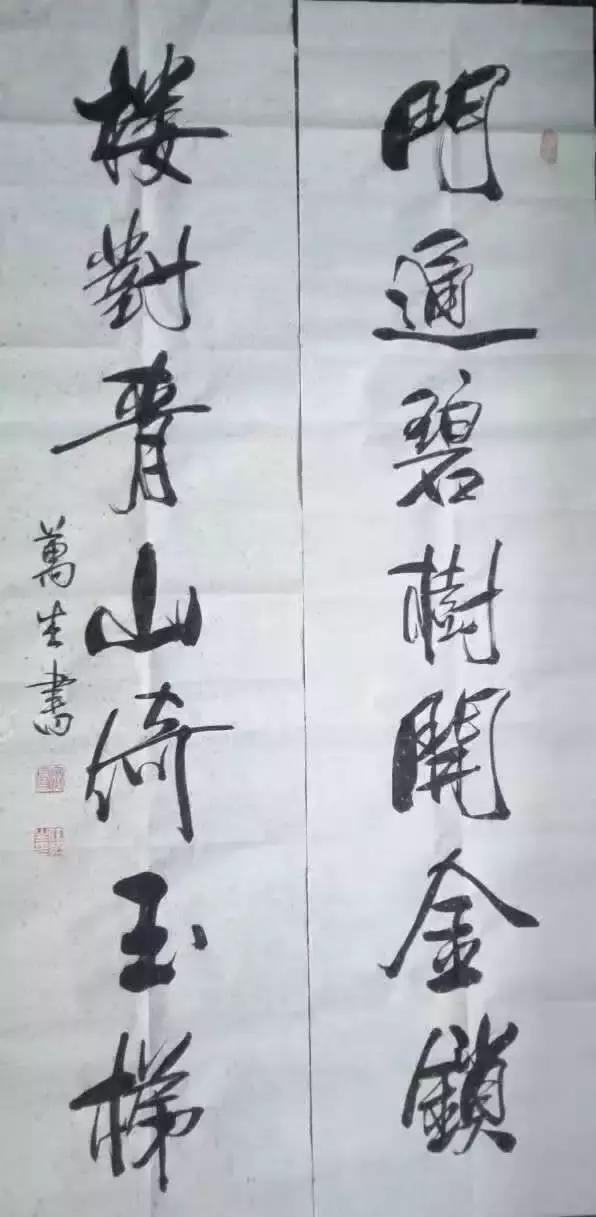 門通碧樹開金鎖
樓對青山倚玉梯
萬生書